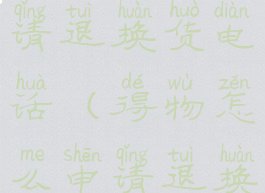 qǐng tuì huàn huò diàn
请退换货电
huà dé wù zěn
话(得物怎
me shēn qǐng tuì huàn
么申请退换